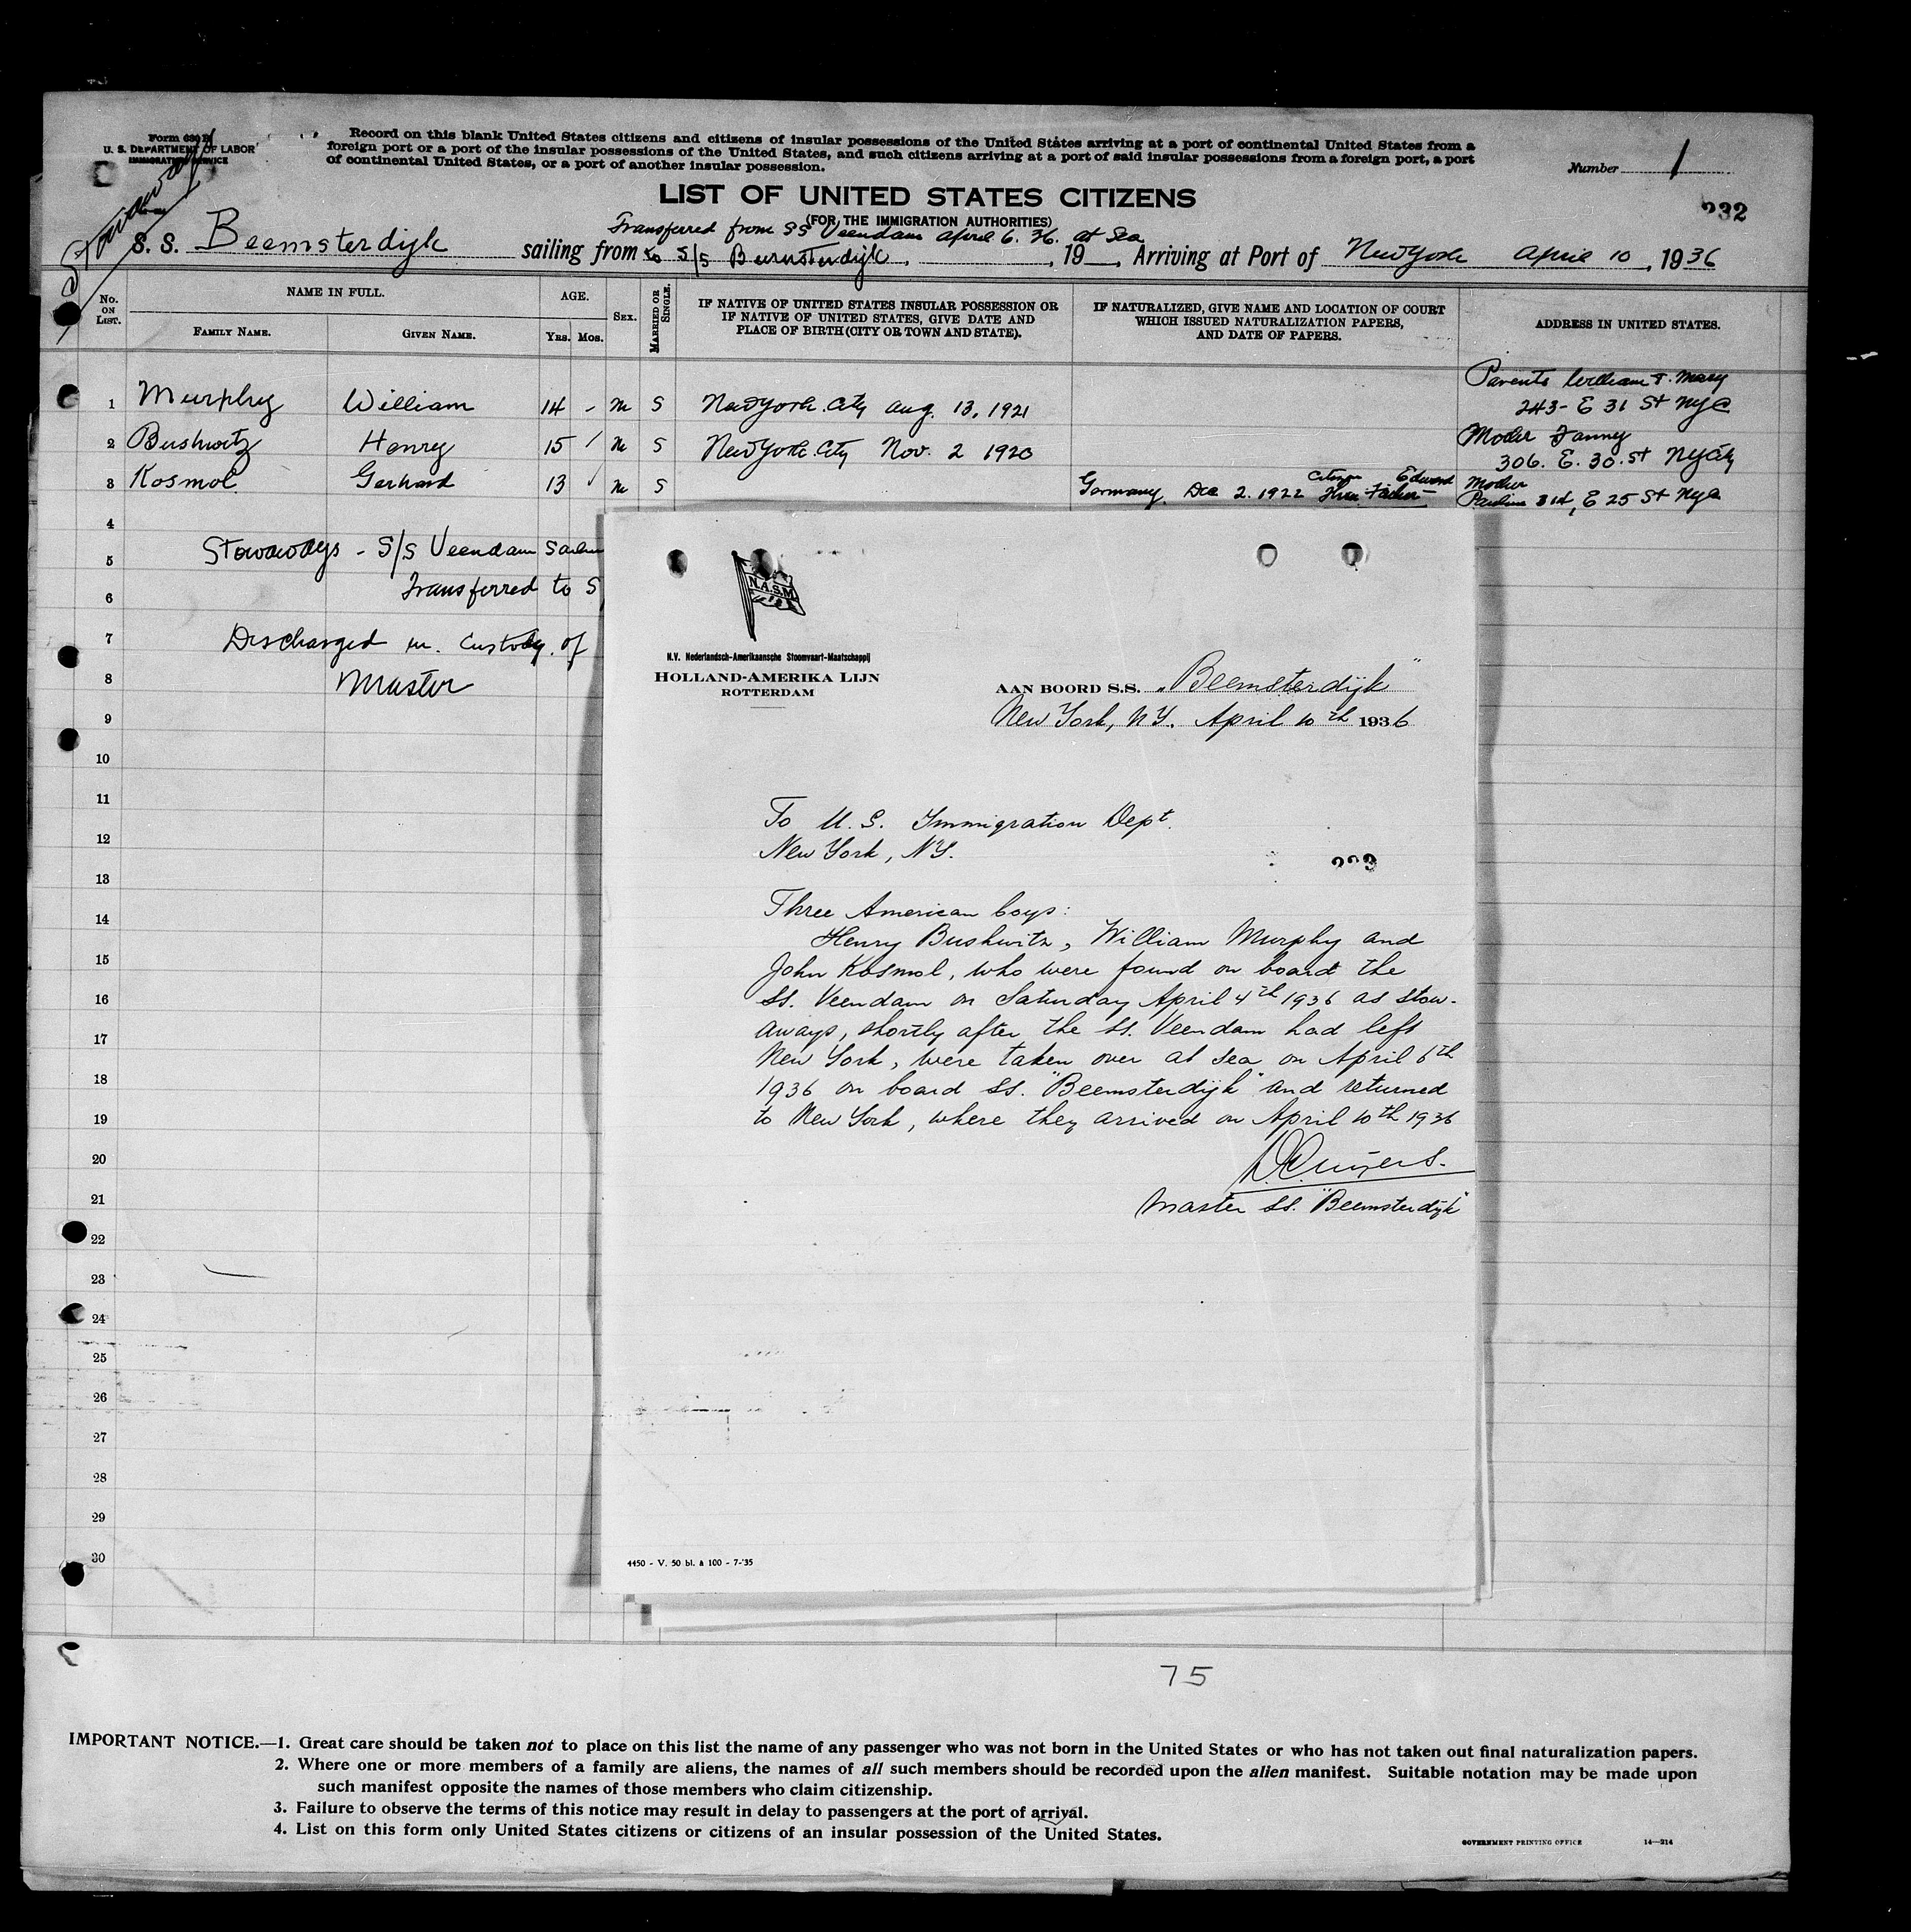 Form 630 B
U. S. DEPARTMENT OF LABOR
IMMIGRATION SERVICE
Stowaways
Record on this blank United States citizens and citizens of insular possessions of the United States arriving at a port of continental United States from a
foreign port or a port of the insular possessions of the United States, and such citizens arriving at a port of said insular possessions from a foreign port, a port
of continental United States, or a port of another insular possession.
Number 1
LIST OF UNITED STATES CITIZENS
232
(FOR THE IMMIGRATION AUTHORITIES)
Transferred from SS Veendam April 6. 36. at Sea
S. S. Beemsterdijk sailing from to S/S Beemsterdijk, , 19 , Arriving at Port of New York April 10, 1936
No. ON LIST. NAME IN FULL. AGE. SEX. MARRIED OR SINGLE. IF NATIVE OF UNITED STATES INSULAR POSSESSION OR IF NATIVE OF UNITED STATES, GIVE DATE AND PLACE OF BIRTH (CITY OR TOWN AND STATE). IF NATURALIZED, GIVE NAME AND LOCATION OF COURT WHICH ISSUED NATURALIZATION PAPERS, AND DATE OF PAPERS. ADDRESS IN UNITED STATES.
FAMILY NAME. GIVEN NAME. YRS. MOS.
Parents William & Mary
1 Murphy William 14 - M S New York City Aug. 13, 1921 243 - E 31 St NYC
Mother Fanny
2 Bushwitz Henry 15 M S New York City Nov. 2 1920 306. E. 30. St NYCity
3 Kosmol Gerhard 13 M S Germany, Dec 2. 1922 Citizen Thru Father - Edward Mother
Pauline 314, E 25 St NYC
4
Stowaways - S/S Veendam
5
Transferred to S
6
7
Discharged in custody of
8
Master
9
10
11
12
13
14
15
16
17
18
19
20
21
22
23
24
25
26
27
28
29
30
N.A.S.M
N.V. Nederlandsch-Amerikaansche Stoomvaart-Maatschappij
HOLLAND-AMERIKA LIJN
ROTTERDAM
AAN BOORD S.S. "Beemsterdijk"
New York, N.Y. April 10th 1936
To U. S. Immigration Dept.
New York, N.Y.
Three American boys:
Henry Bushwitz, William Murphy and
John Kosmol, who were found on board the
ss. Veendam on Saturday April 4th 1936 as stow-
aways, shortly after the ss. Veendam had left
New York, were taken over at sea on April 6th
1936 on board ss. "Beemsterdijk" and returned
to New York, where they arrived on April 10th 1936
Master ss. "Beemsterdijk"
4450 - V. 50 bl. à 100 - 7-'35
75
IMPORTANT NOTICE.—1. Great care should be taken not to place on this list the name of any passenger who was not born in the United States or who has not taken out final naturalization papers.
2. Where one or more members of a family are aliens, the names of all such members should be recorded upon the alien manifest. Suitable notation may be made upon
such manifest opposite the names of those members who claim citizenship.
3. Failure to observe the terms of this notice may result in delay to passengers at the port of arrival.
4. List on this form only United States citizens or citizens of an insular possession of the United States.
GOVERNMENT PRINTING OFFICE 14—214